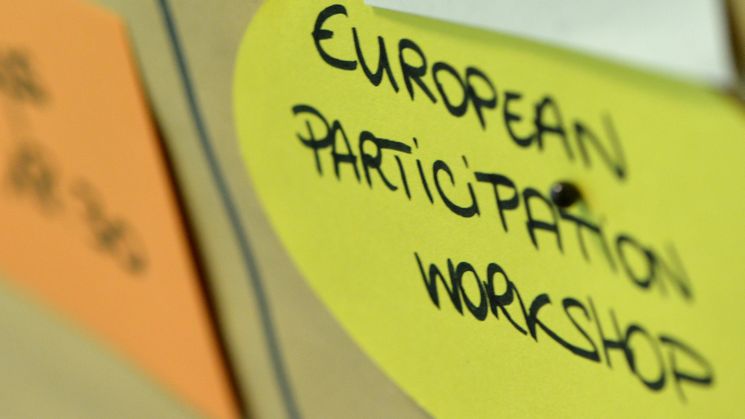 EUROPEAN
PARTICIPATION
WORKSHOP